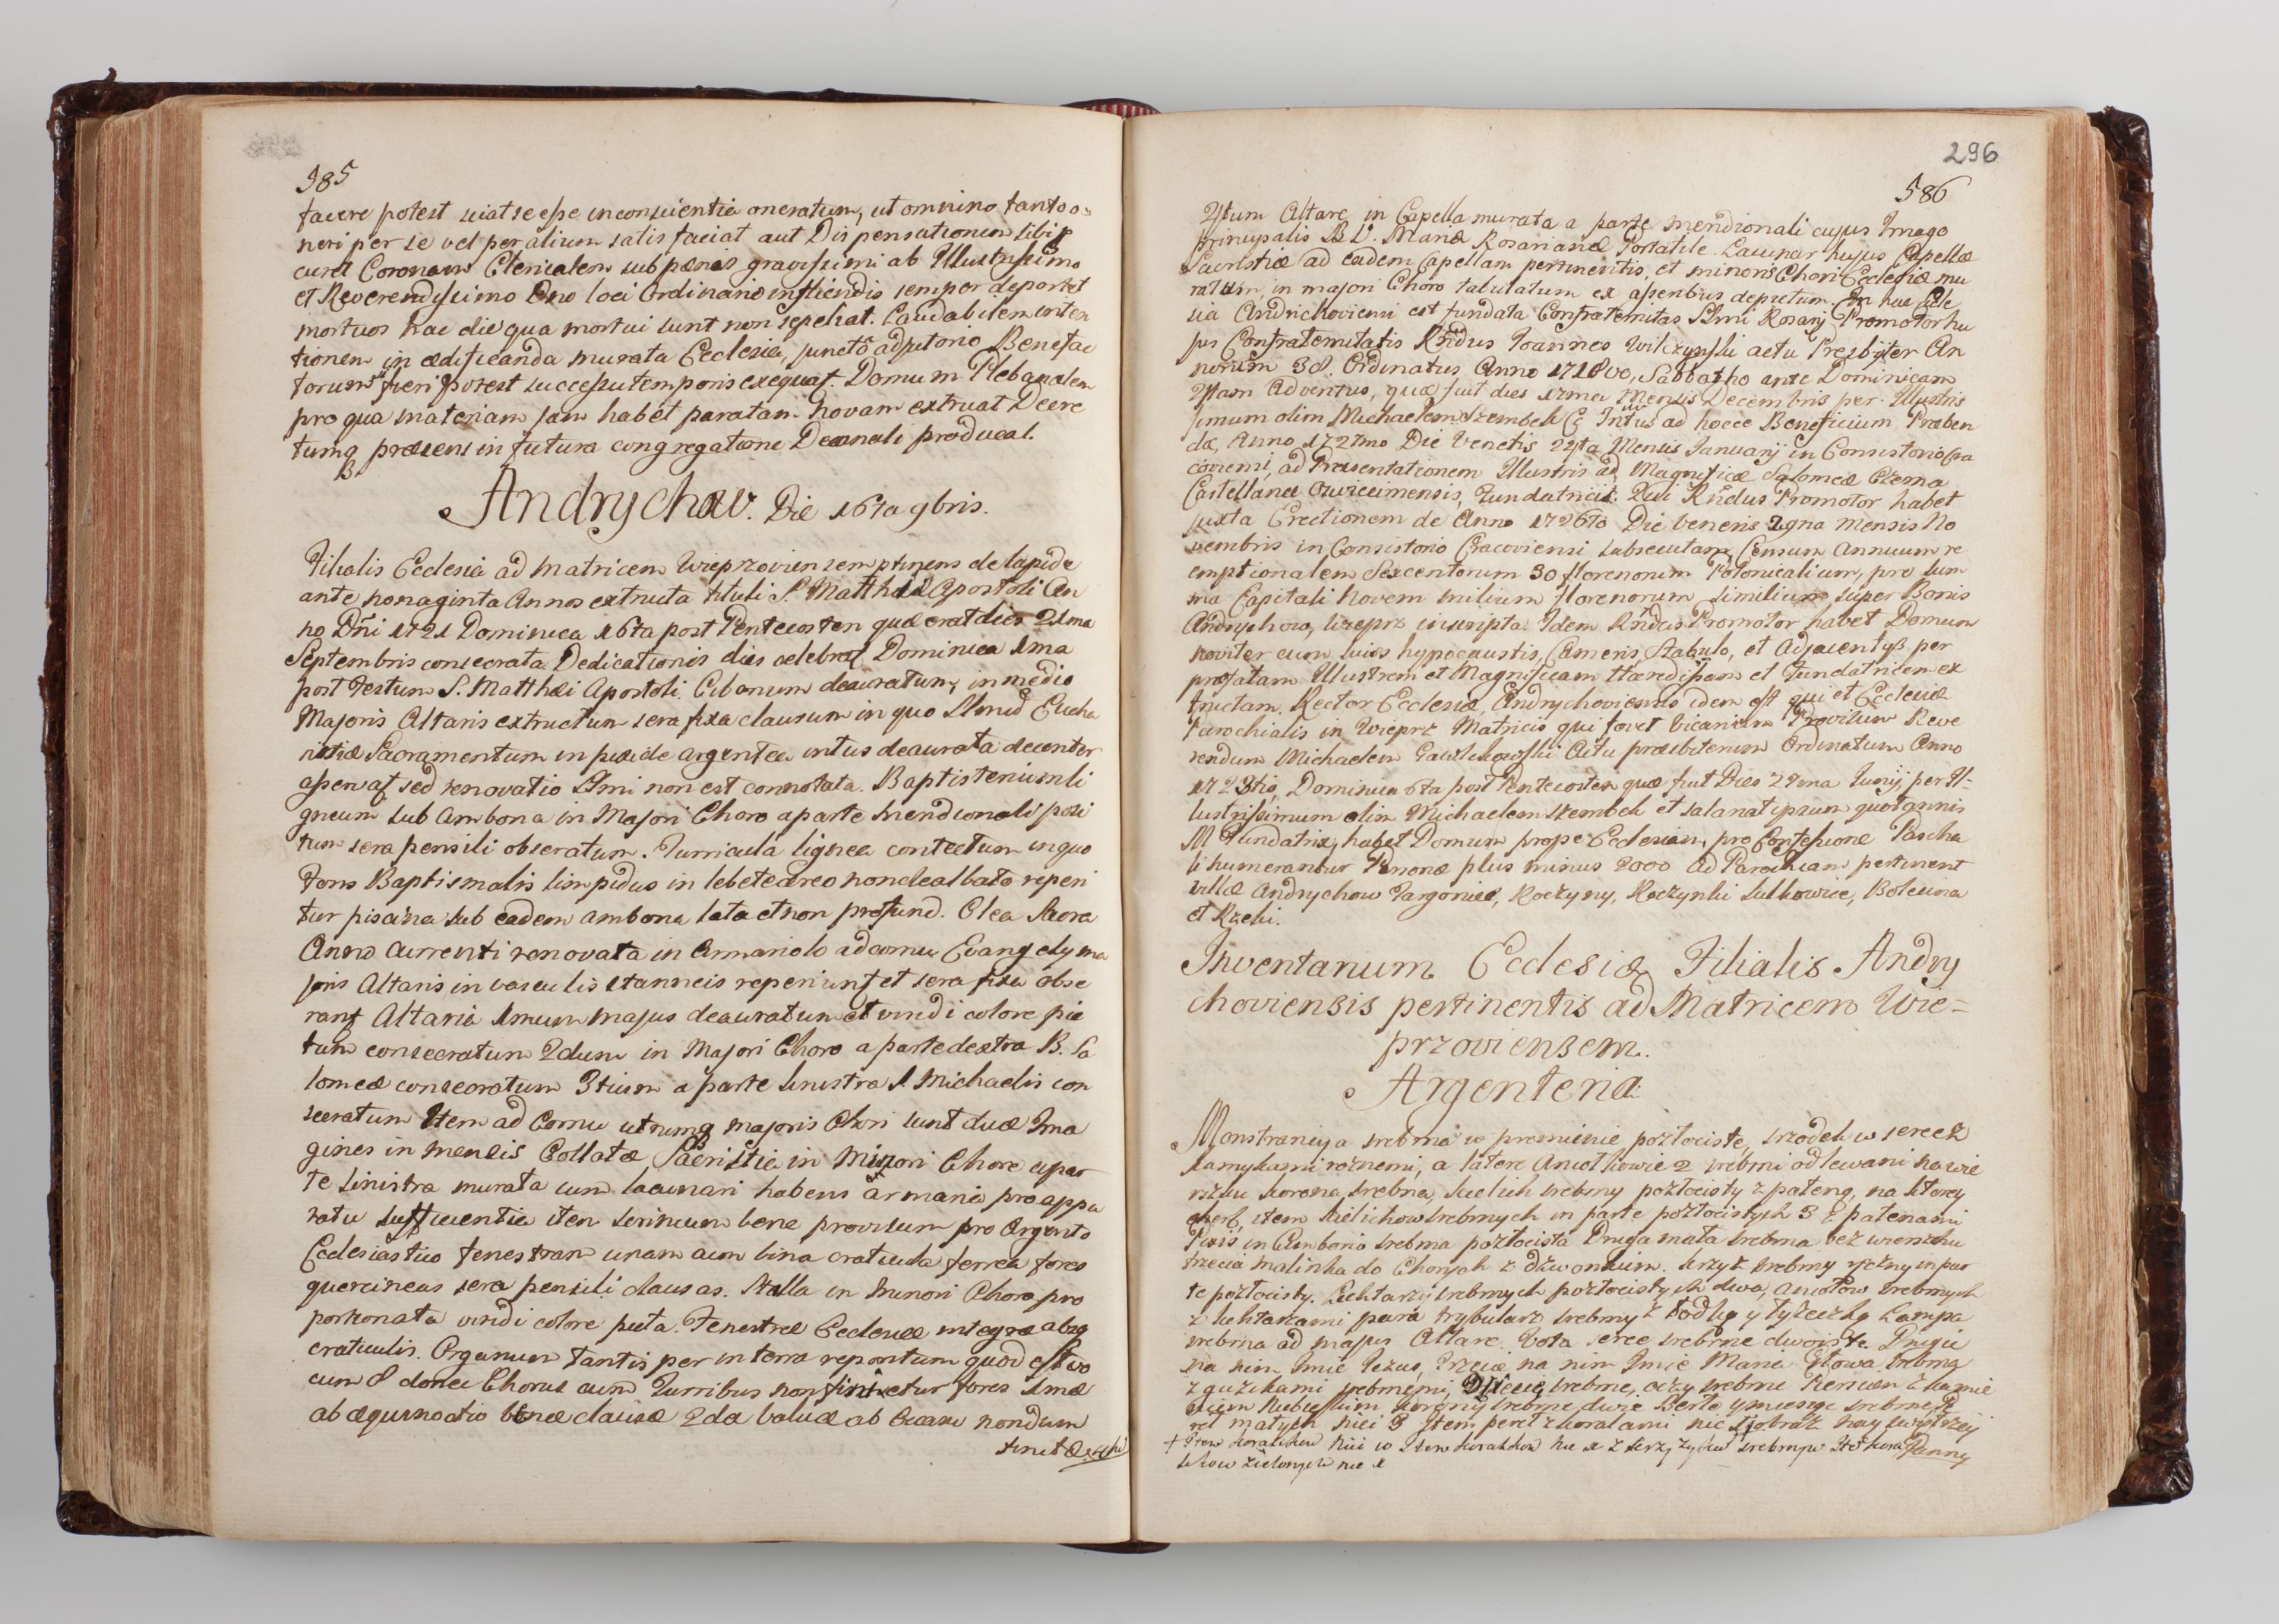 585
facere potest sciat se esse in conscientia oneratum, ut omnino tanto o=
neri per se vel per alium satis faciat aut Dispensationem sibi p
curet Coronam Clericalem sub pænis gravissimi ab Illustrissimo
et Reverendissimo Dno loci Ordinario infliendis semper deportet
mortuos hac die qua mortui sunt non sepeliat. Laudabilem inten
tionem in ædificanda murata Ecclesia, juncto adjutorio Benefac
torum fieri potest successu temporis exequat. Domum Plebanalem
pro qua materiam jam habet paratam novam extruat Decre
tumq præsens in futura congregatione Decanali producat.
Andrychow. Die 16ta 9bris.
Filialis Ecclesia ad Matricem Wieprzoviensem ptinens de lapide
ante nonaginta Annos extructa tituli S. Matthæi Apostoli An
no Dñi 1721 Dominica 16ta post Pentecosten quæ erat dies 21ma
Septembris consecrata Dedicationis dies celebrat Dominica 1ma
post Festum S. Matthæi Apostoli. Ciborium deauratum in medio
Majoris Altaris extructum sera fixa clausum in quo SSmũ Eucha
ristiæ Sacramentum in pixide argentea intus deaurata decenter
asservat sed renovatio SSmi non est connotata. Baptisterium li
gneum sub Ambona in Majori Choro a parte meridionali posi
tum sera pensili obseratum. Turricula lignea contectum in quo
Fons Baptismalis limpidus in lebete æreo non dealbato reperi
tur piscina sub eadem ambona lata et non profund. Olea Sacra
Anno currenti renovata in Armariolo ad cornu Evangely ma
joris Altaris in vasculis stanneis reperiunt et sera fixa obse
rant Altaria 1mum majus deauratum et viridi colore pic
tum consecratum 2dum in Majori Choro a parte dextra B. Sa
lomeæ consecratum 3tium a parte sinistra S. Michaelis con
secratum Item ad Cornu utrumq majoris Chori sunt duæ Ima
gines in mensis Collatæ, Sacristia in Minori Choro a par
te sinistra murata cum lacunari habens armaria pro appa
ratu sufficientia item scrinium bene provisum pro Argento
Ecclesiastico fenestram unam cum bina craticula ferrea fores
quercineas sera pensili clausas. Stalla in Minori Choro pro
portionata viridi colore picta. Fenestræ Ecclesiæ integræ absq
craticulis. Organum tantisper in terra repositum quod est vo
cum 8 donec Chorus cum Turribus non finietur fores 1mæ
ab æquinoctio bene clausæ 2dæ valvæ ab Occasu nondum
296
586
4tum Altare in Capella murata a parte meridionali cujus Imago
principalis B.V. Mariæ Rosarianæ Portatile. Lacunar hujus Capellæ
Sacristiæ ad eadem Capellam pertinentis, et minoris Chori Ecclesiæ mu
ratum, in majori Choro tabulatum ex asseribus depictum. In hac Ecle
sia Andrichoviensi est fundata Confraternitas SSmi Rosarij Promotor hu
jus Confraternitatis Rñdus Joannes Wilczynski actu Presbyter An
norum 38. Ordinatus Anno 1718vo, Sabbatho ante Dominicam
4tam Adventus, quæ fuit dies 17ma Mensis Decembris per Illustris
simum olim Michaelem Szembek E. Intus ad hocce Beneficium Præben
dæ, Anno 1727mo Die Veneris 24ta Mensis Januarij in Consistorio Cra
coviensi, ad Præsentationem Illustris ad Magnificæ Salomeæ Czerna
Castellanæ Oswiecimensis, Fundatricis. Qui Rñdus Promotor habet
juxta Erectionem de Anno 1726to Die Veneris 29na Mensis No
vembris in Consistorio Cracoviensi subsecutam, Censum annuum re
emptionalem Sexcentorum 30 florenorum Polonicalium, pro sum
ma Capitali Novem milium florenorum similium super Bonis
Andrychow, Wieprz inscripta. Idem Rñdus Promotor habet Domum
noviter cum suis hypocaustis, Cameris Stabulo, et Adjacentys per
præfatam Illustrem et Magnificam Hæredissam et Fundatricem ex
tructam. Rector Ecclesiæ Andrychoviensis idem est qui et Ecclesiæ
Parochialis in Wieprz Matricis qui fovet Vicarium Provisum Reve
rendum Michaelem Pawlikowski Actu præsbiterum Ordinatum Anno
1723tio, Dominica 6ta post Pentecosten quæ fuit Dies 27ma Junij, per Il=
lustrissimum olim Michaelem Szembek et salariat ipsum quotannis
M Fundatrix, habet Domum prope Ecclesiam, pro Confessione Pascha
li numerantur Personæ plus minus 2000 ad Parochiam pertinent
villæ Andrychow Targonice, Roczyny, Roczynki Sulkowice, Bolecina
et Rzeki.
Inventarium Ecclesiæ Filialis Andry
choviensis pertinentis ad Matricem Wie=
przoviensem.
Argenteria
Monstrancya srebrna w promienie pozłociste, srzodek w serce z
kamykami roznemi, a latere Aniołkowie 2 srebrni odlewani na wie
rzchu korona srebrna, kielich srebrny pozłocisty z pateną, na ktorey
cherb, item kielichow srebrnych in parte pozłocistych 3 z patenami
Pixis in Cimborio srebrna pozłocista Druga mała srebrna bez wierzchu
trzecia malinka do Chorych z dzwonkiem. Krzyż srebrny ręczny in par
te pozłocisty. Lichtarzy srebrnych pozłocistych dwa, aniołow srebrnych
z lichtarzami para trybularz srebrny z łodką y łyżeczką Lampa
srebrna ad majus Altare. Vota serce srebrne dwoiste Drugie
na nim Imie Jezus, trzecie na nim Imie Maria Głowa srebrna
z guzikami srebrnemi, Dziecię srebrne, oczy srebrne
+ Item